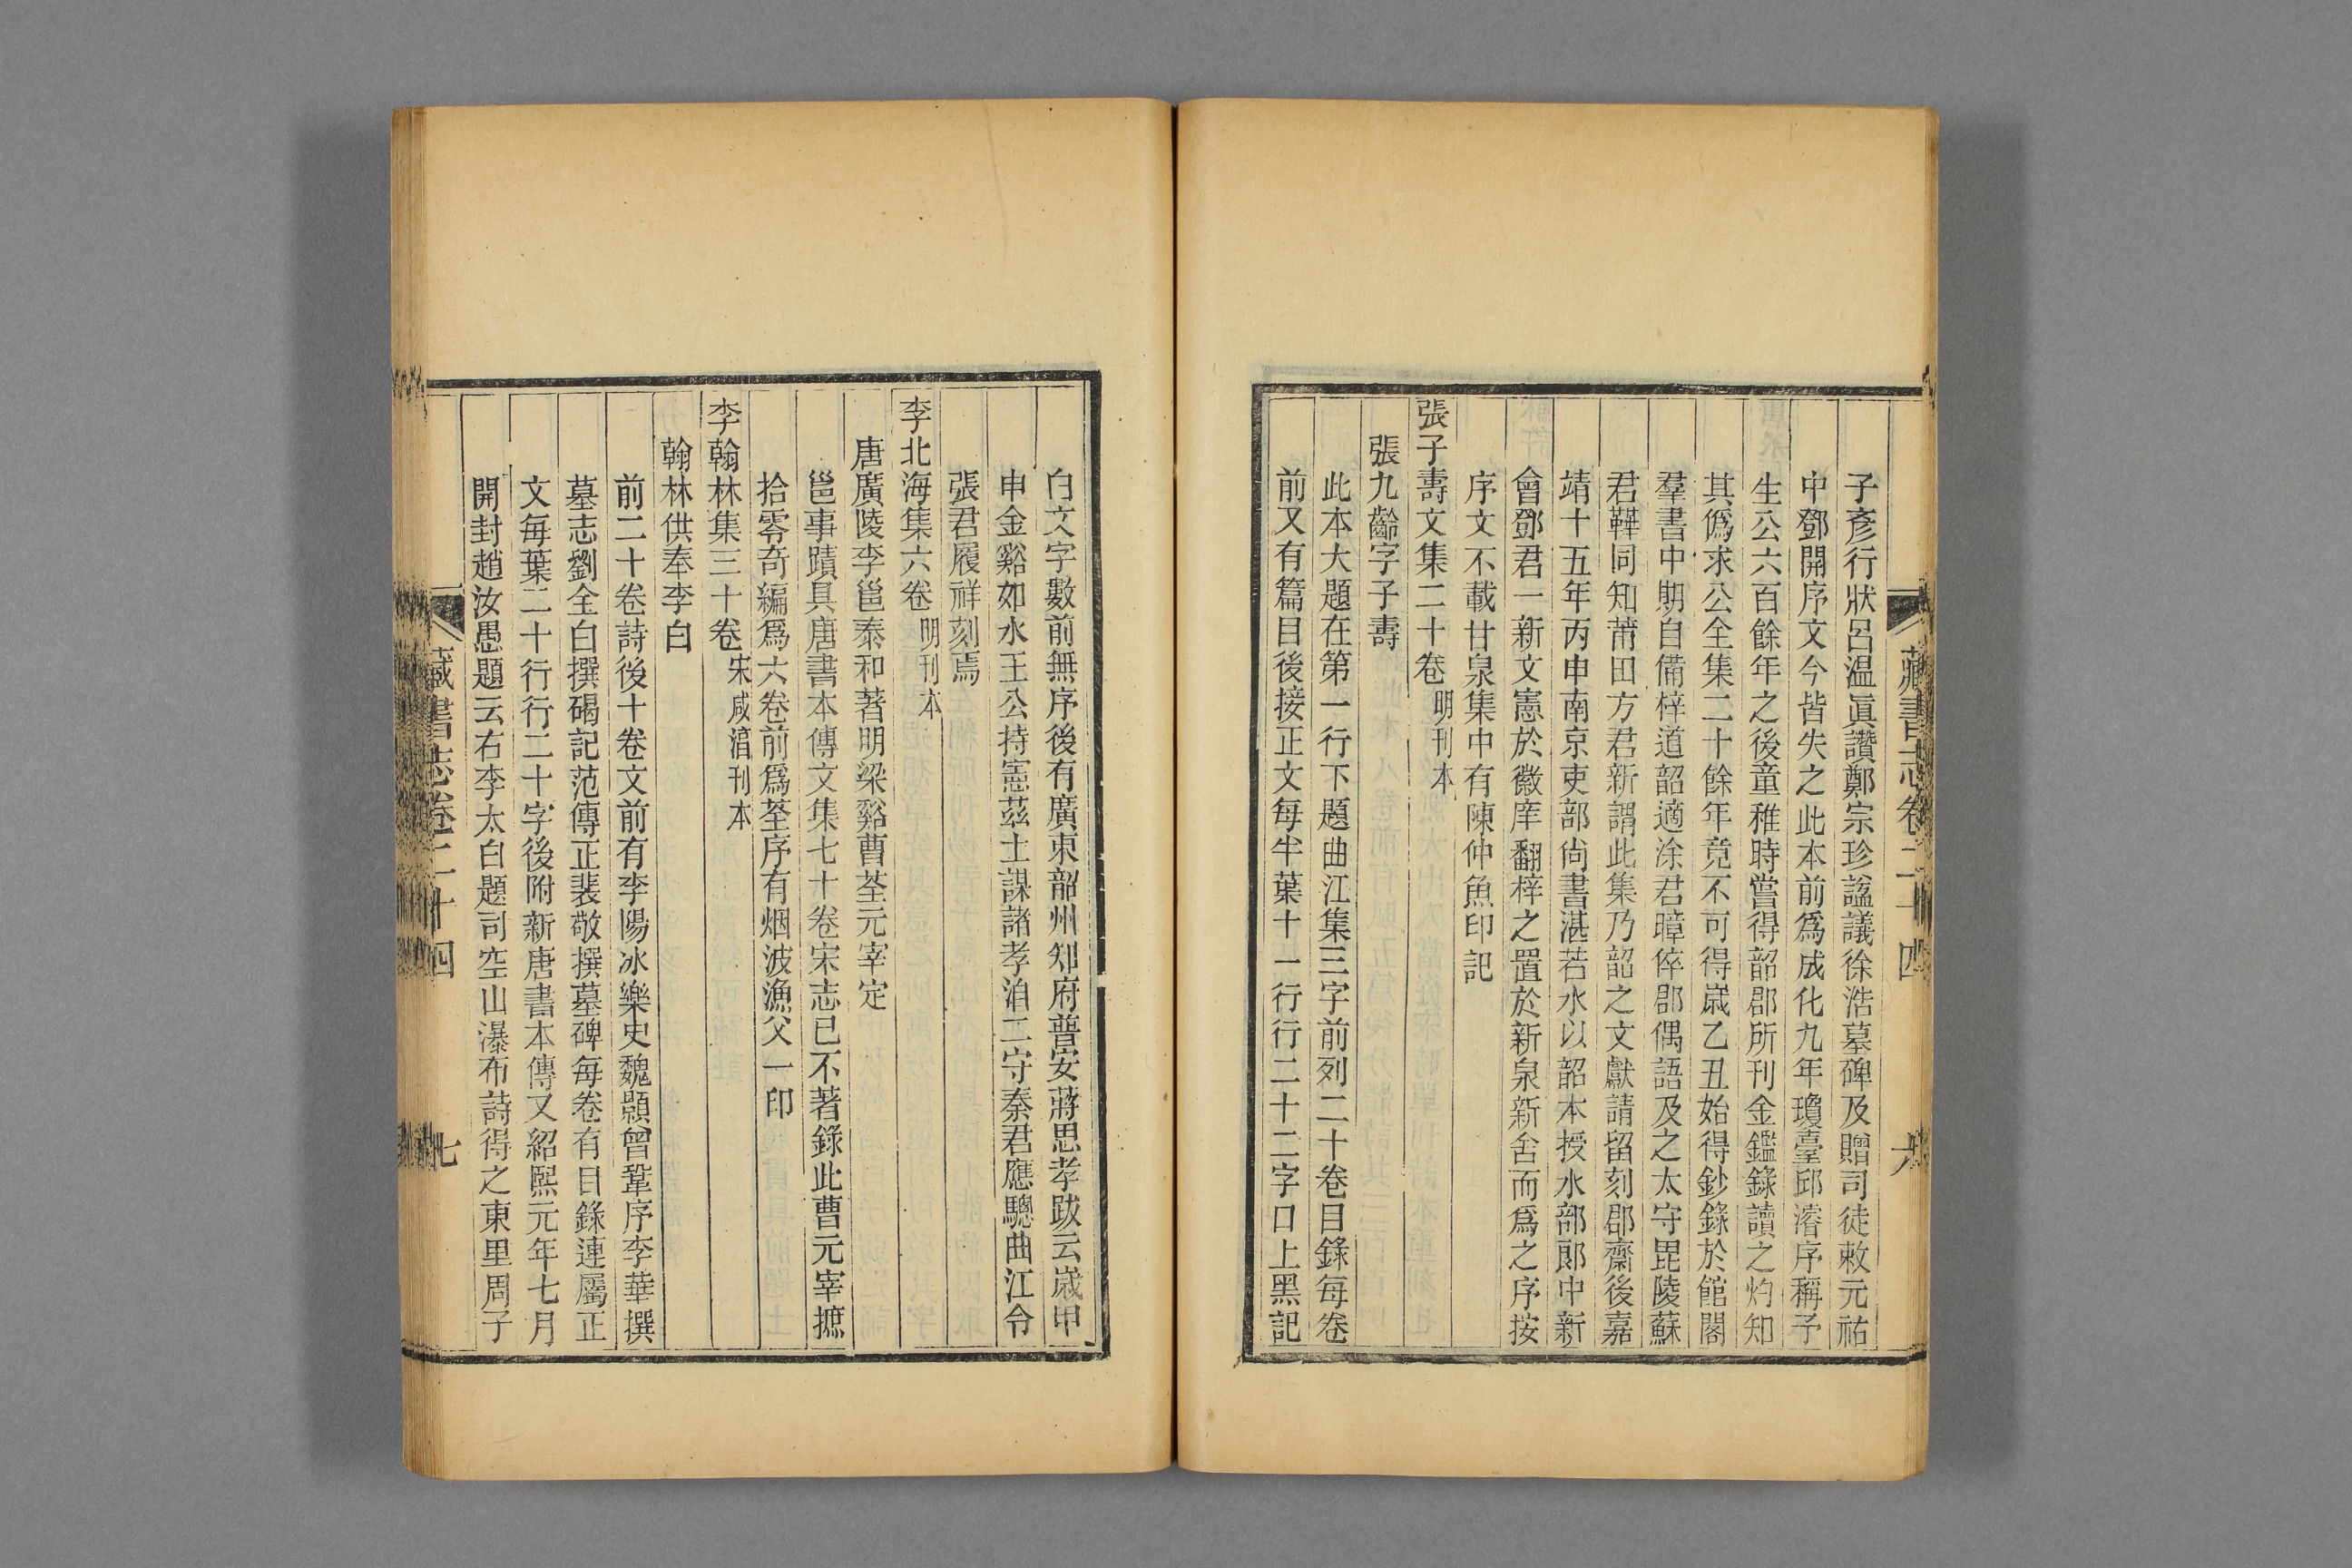 藏書志卷二十四
六
子彥行狀呂温眞讚鄭宗珍諡議徐浩墓碑及贈司徒敕元祐
中鄧開序文今皆失之此本前爲成化九年瓊臺邱濬序稱予
生公六百餘年之後童稚時嘗得韶郡所刊金鑑錄讀之灼知
其僞求公全集二十餘年竟不可得歲乙丑始得鈔錄於館閣
羣書中朞自備梓道韶適涂君暲倅郡偶語及之太守毘陵蘇
君韡同知莆田方君新謂此集乃韶之文獻請留刻郡齋後嘉
靖十五年丙申南京吏部尙書湛若水以韶本授水部郞中新
會鄧君一新文憲於徽庠翻梓之置於新泉新舍而爲之序按
序文不載甘泉集中有陳仲魚印記
張子壽文集二十卷明刊本
張九齡字子壽
此本大題在第一行下題曲江集三字前列二十卷目錄每卷
前又有篇目後接正文每半葉十一行行二十二字口上黑記
白文字數前無序後有廣東韶州知府普安蔣思孝跋云歲甲
申金谿如水王公持憲茲土謀諸孝洎二守秦君應驄曲江令
張君履祥刻焉
李北海集六卷明刊本
唐廣陵李邕泰和著明梁谿曹荃元宰定
邕事蹟具唐書本傳文集七十卷宋志已不著錄此曹元宰摭
拾零奇編爲六卷前爲荃序有烟波漁父一印
李翰林集三十卷宋咸淳刊本
翰林供奉李白
前二十卷詩後十卷文前有李陽冰樂史魏顥曾鞏序李華撰
墓志劉全白撰碣記范傳正裴敬撰墓碑每卷有目錄連屬正
文每葉二十行行二十字後附新唐書本傳又紹熙元年七月
開封趙汝愚題云右李太白題司空山瀑布詩得之東里周子
藏書志卷二十四
七